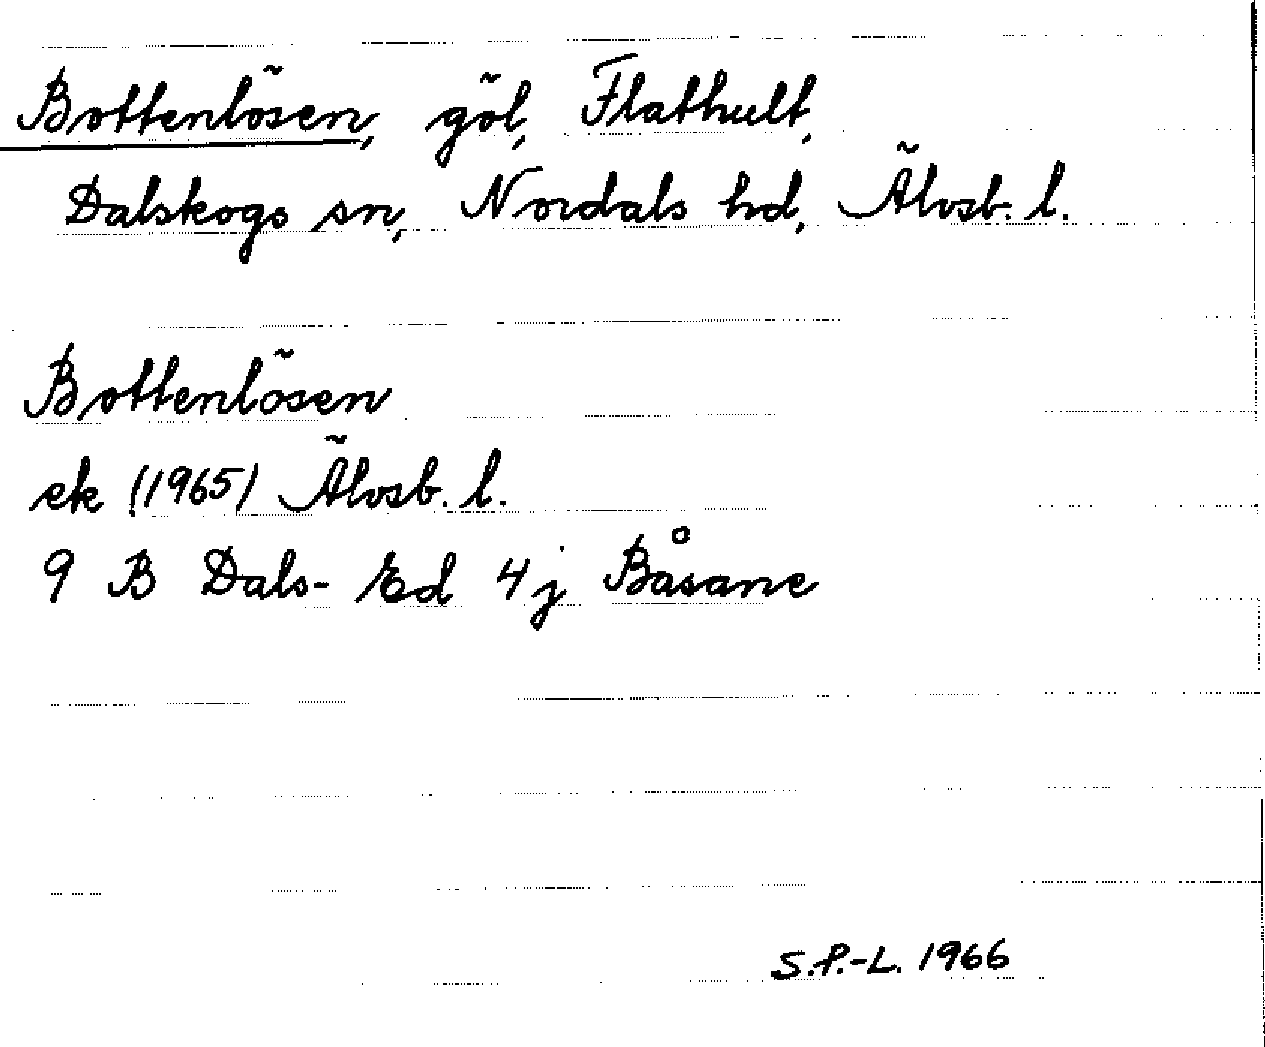 Bottenlösen, göl, Flathult,
Dalskogs sn, Nordals hd, Älvsb. l.
Bottenlösen
ek (1965) Älvsb. l.
9 B Dals-Ed 4j Båsane
S.P.-L. 1966